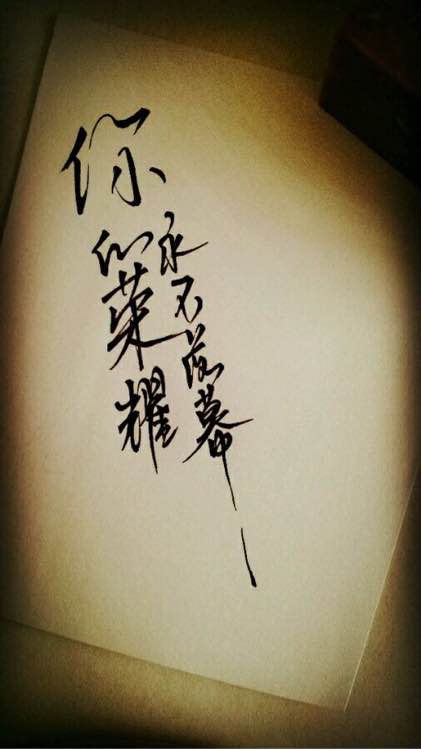 你的荣耀
永不落幕